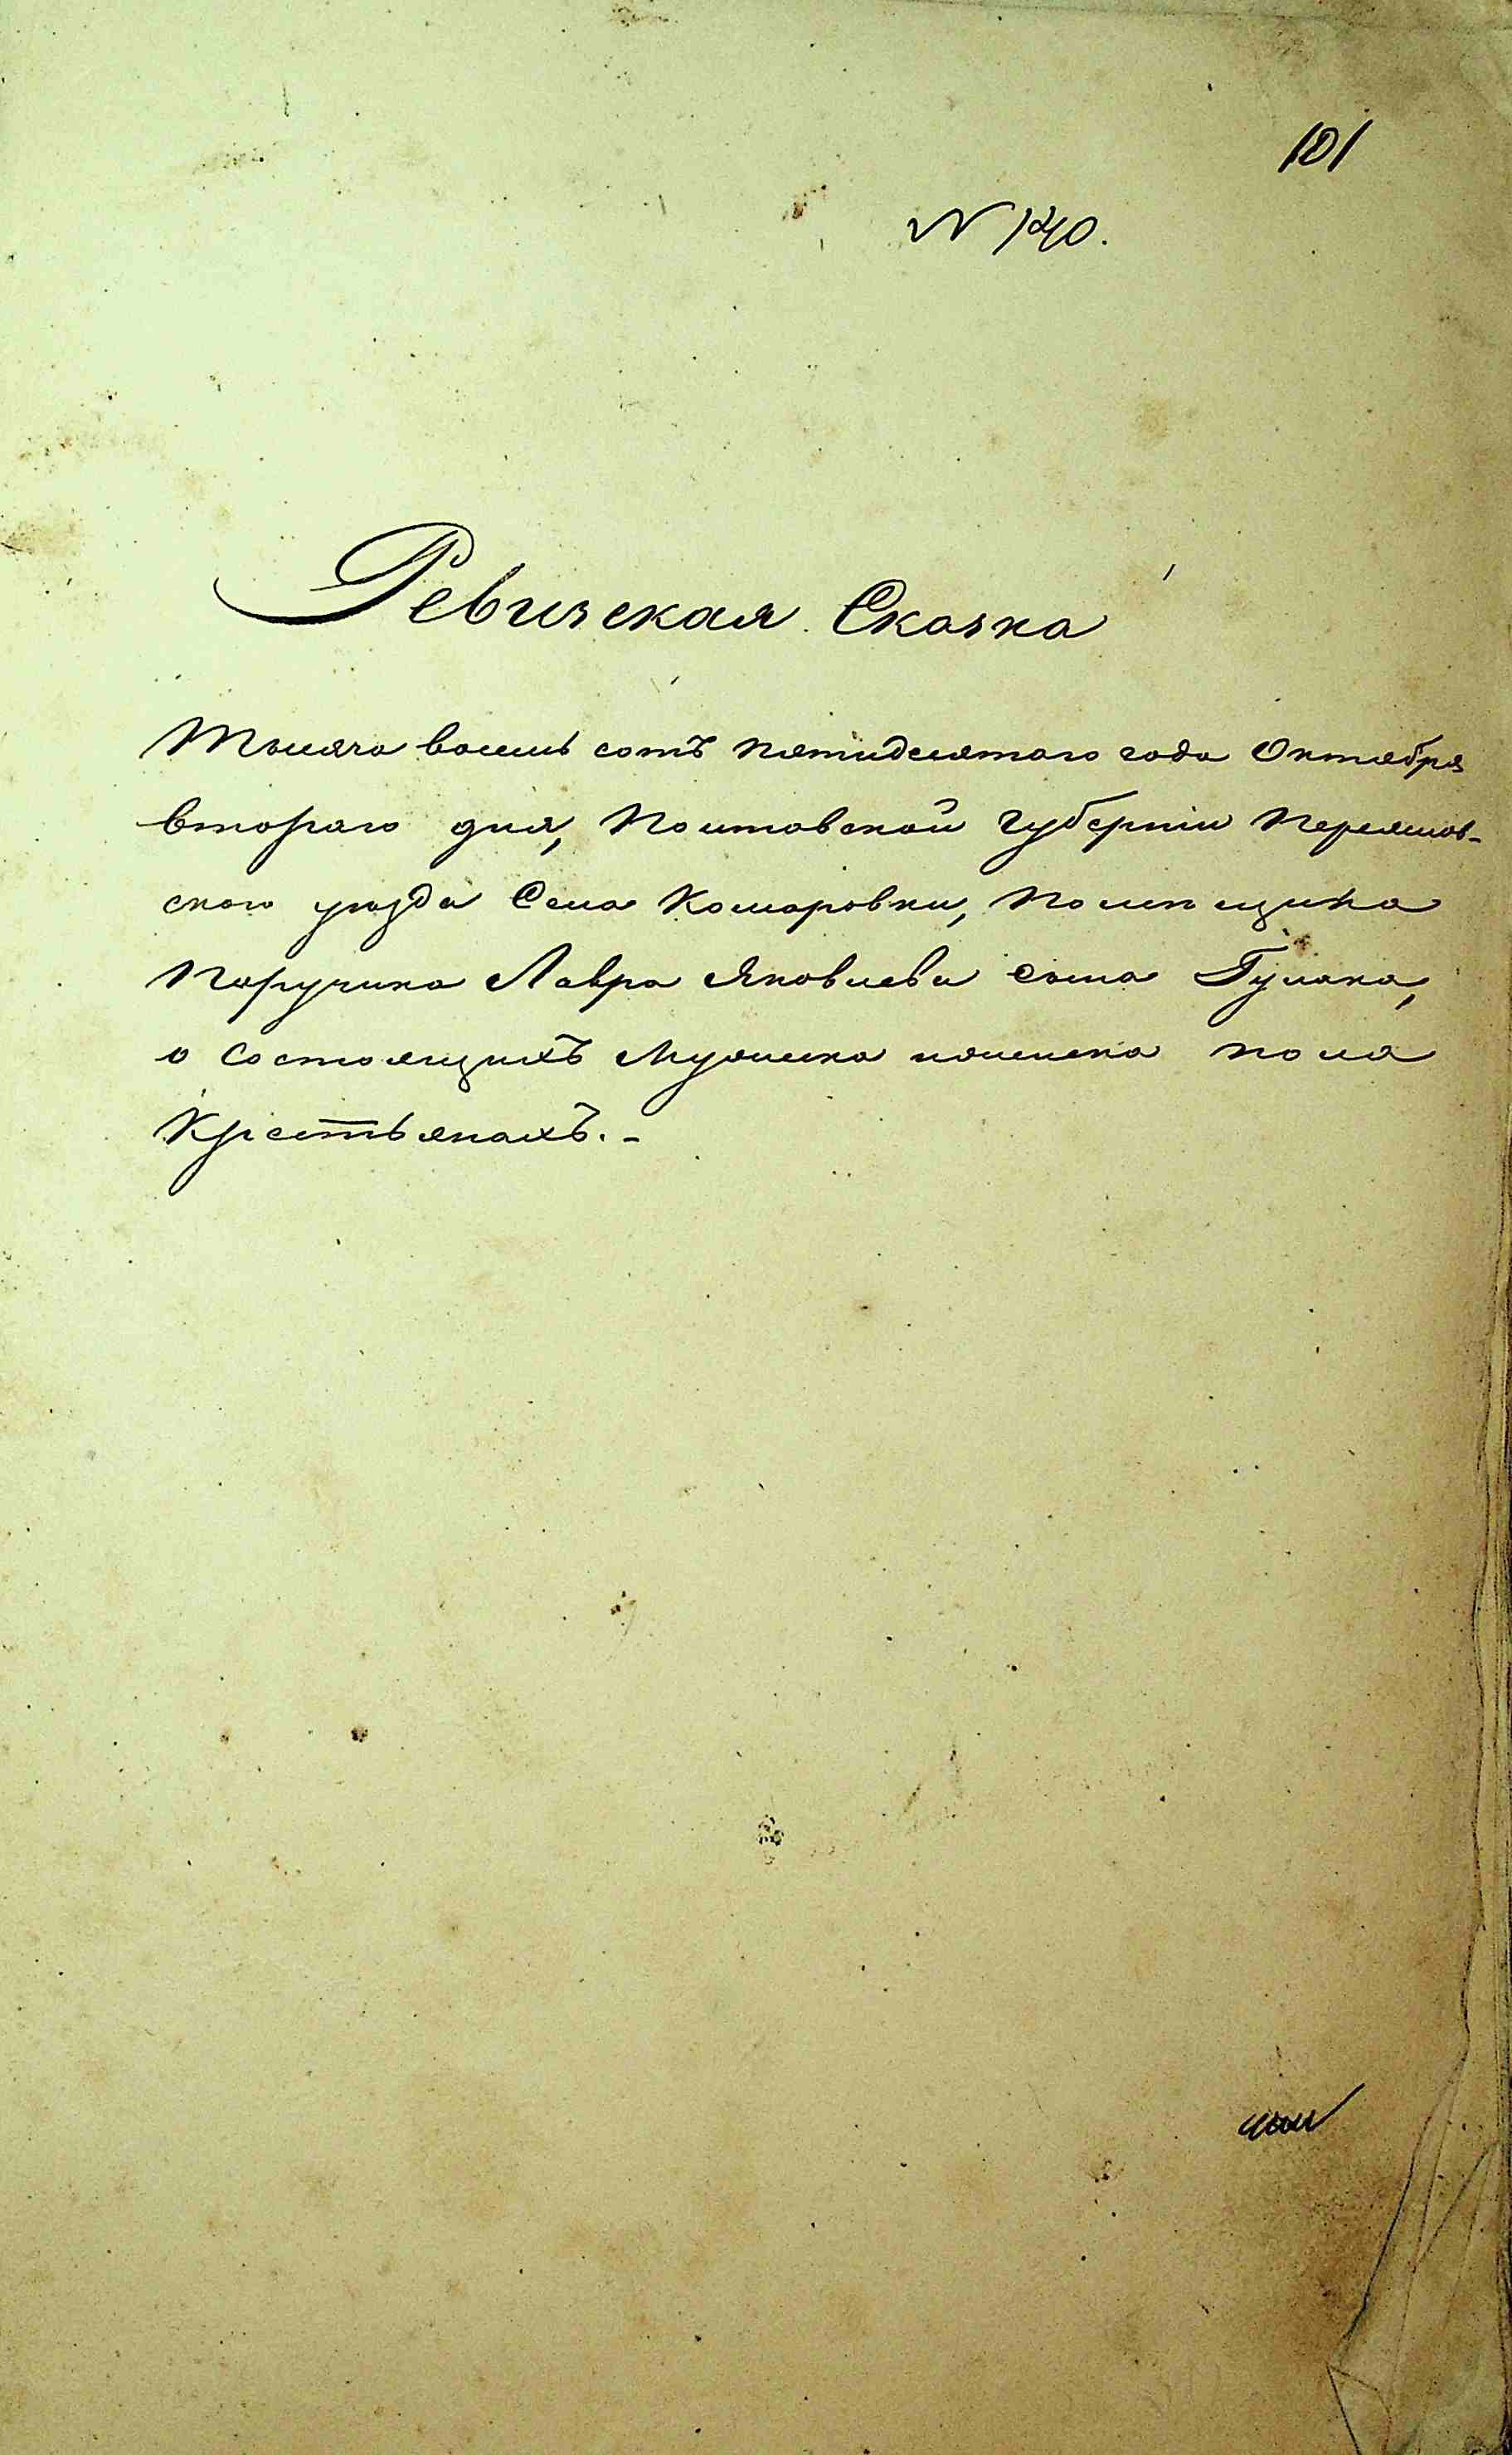 101
N 140.
Ревизская Сказка
Тысяча восемь сотъ пятидесятаго года Октября
втораго дня, Полтавской губерніи Переяслов-
скаго уезда Села Комаровки, Помещика
Поручика Лавра Яковлева сына Гулака,
о состоящихъ мужеска и женска пола
Крестьянахъ.-